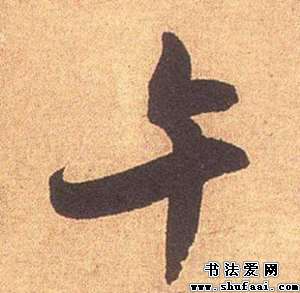 午
书法爱网
www.shufaai.com